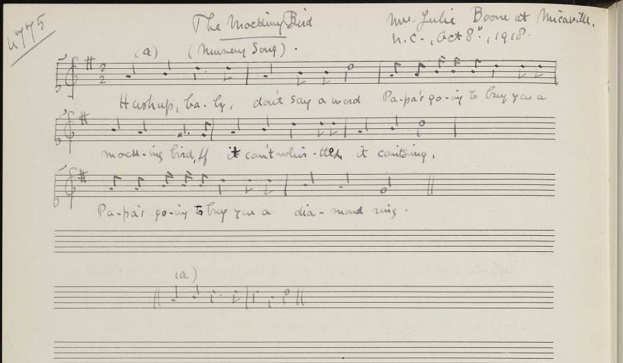 4775
The Mocking Bird
Mrs. Julie Boone at Micaville,
N.C., Oct 8th, 1918.
(a) (Nursery Song).
Hush up, ba-by, don't say a word Pa-pa's go-ing to buy you a
mock-ing bird, If it can't whis-tle it can sing,
Pa-pa's go-ing to buy you a dia-mond ring.
(a)